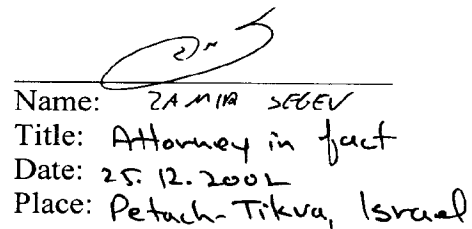 Name: ZAMIR SEGEV
Title: Attorney in fact
Date: 25.12.2002
Place: Petach-Tikva, Israel